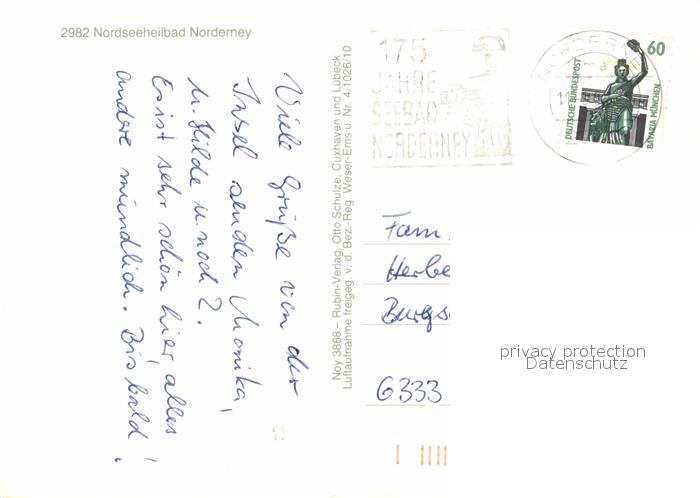 2982 Nordseeheilbad Norderney
Viele Grüße von der
Insel senden Monika,
u. Hilde u. noch 2.
Es ist sehr schön hier, alles
andere mündlich. Bis bald!
Noy 3888 – Rubin-Verlag, Otto Schulze, Cuxhaven und Lübeck
Luftaufnahme freigeg. v. d. Bez.-Reg. Weser-Ems u. Nr. 4/1026/10
175
JAHRE
SEEBAD
NORDERNEY
NORDERNEY
60
DEUTSCHE BUNDESPOST
BAVARIA MÜNCHEN
Fam.
Herbe
Burgs
6333
privacy protection
Datenschutz